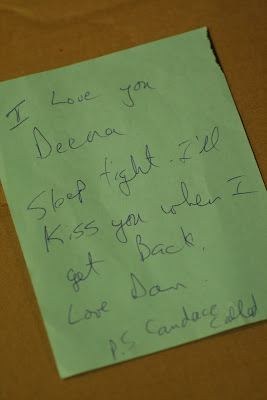 I Love you
Deena
Sleep tight. I'll
Kiss you when I
get Back.
Love Dan.
P.S Candace
Called